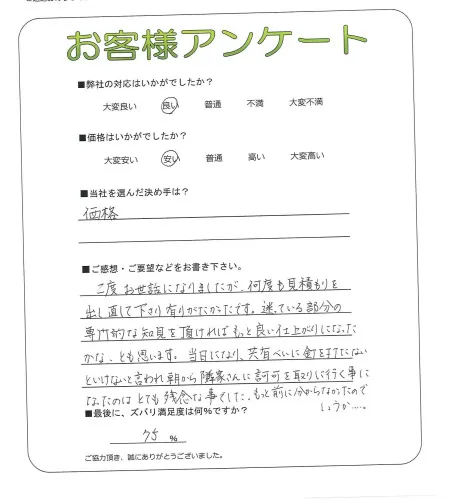 お客様アンケート
■弊社の対応はいかがでしたか?
大変良い 良い 普通 不満 大変不満
■価格はいかがでしたか?
大変安い 安い 普通 高い 大変高い
■当社を選んだ決め手は?
価格
■ご感想・ご要望などをお書き下さい。
二度お世話になりましたが、何度も見積もりを
出し直して下さり有りがたかったです。迷っている部分の
専門的な知見を頂ければもっと良い仕上がりになった
かな、とも思います。当日になり、共有べいに釘を打たない
といけないと言われ朝から隣家さんに許可を取りに行く事に
なったのはとても残念な事でした。もっと前に分からなかったので
しょうか…。
■最後に、ズバリ満足度は何%ですか?
75 %
ご協力頂き、誠にありがとうございました。